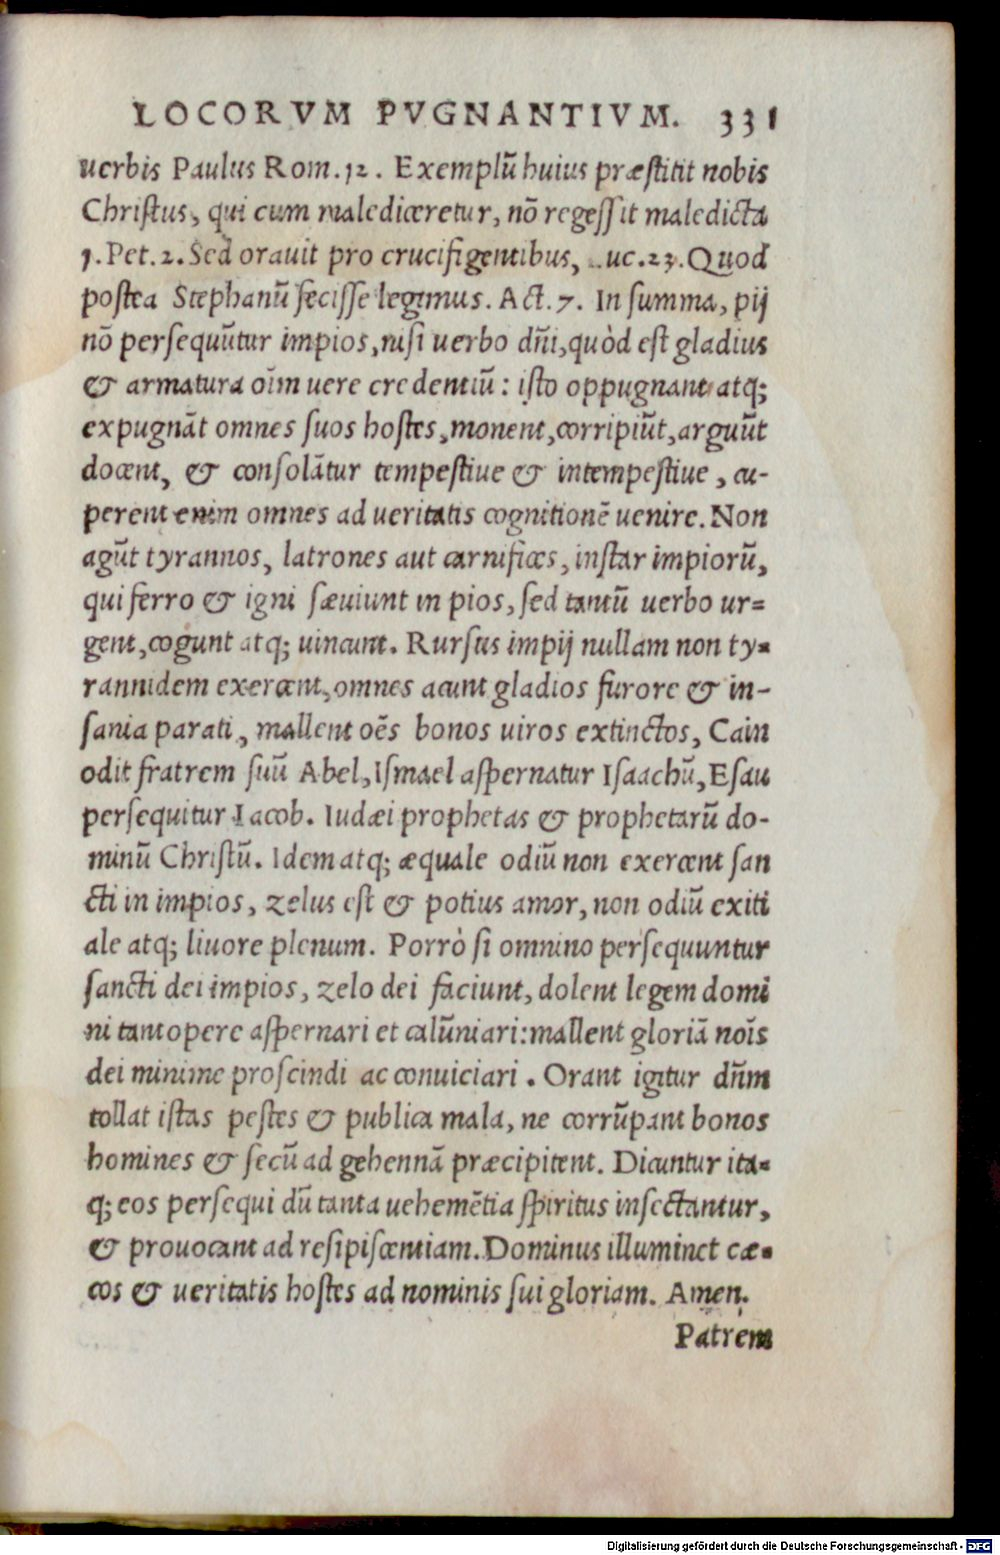 LOCORVM PVGNANTIVM. 331
uerbis Paulus Rom.12. Exemplū huius præstitit nobis
Christus, qui cum malediceretur, nō regessit maledicta
1.Pet.2.Sed orauit pro crucifigentibus, uc.23.Quod
postea Stephanū fecisse legimus. Act.7. In summa, pij
nō persequūtur impios,nisi uerbo dn̄i,quòd est gladius
& armatura oīm uere credentiū: isto oppugnant atq;
expugnāt omnes suos hostes,monent,corripiūt,arguūt
docent, & consolātur tempestiue & intempestiue, cu-
perent enim omnes ad ueritatis cognitionē uenire. Non
agūt tyrannos, latrones aut carnifices, instar impiorū,
qui ferro & igni sæuiunt in pios, sed tantū uerbo ur=
gent,cogunt atq; uincunt. Rursus impij nullam non ty=
rannidem exercent,omnes acunt gladios furore & in-
sania parati, mallent oēs bonos uiros extinctos, Cain
odit fratrem suū Abel,Ismael aspernatur Isaachū,Esau
persequitur Iacob. Iudæi prophetas & prophetarū do-
minū Christū. Idem atq; æquale odiū non exercent san
cti in impios, zelus est & potius amor, non odiū exiti
ale atq; liuore plenum. Porrò si omnino persequuntur
sancti dei impios, zelo dei faciunt, dolent legem domi
ni tantopere aspernari et calūniari:mallent gloriā noīs
dei minime proscindi ac conuiciari. Orant igitur dn̄m
tollat istas pestes & publica mala, ne corrūpant bonos
homines & secū ad gehennā præcipitent. Dicuntur ita=
q; eos persequi dū tanta uehemētia spiritus insectantur,
& prouocant ad resipiscentiam.Dominus illuminet cæ=
cos & ueritatis hostes ad nominis sui gloriam. Amen.
Patrem
Digitalisierung gefördert durch die Deutsche Forschungsgemeinschaft - DFG